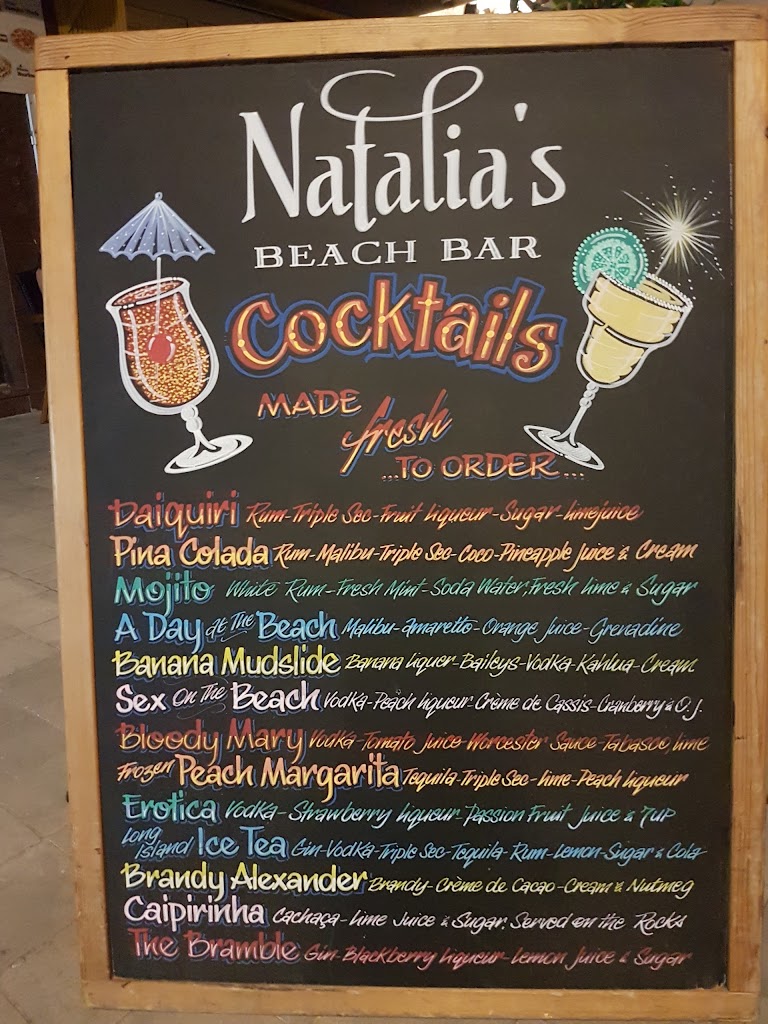 Natalia's
BEACH BAR
Cocktails
MADE fresh
...TO ORDER...
Daiquiri Rum-Triple Sec-Fruit Liqueur-Sugar-Limejuice
Pina Colada Rum-Malibu-Triple Sec-Coco-Pineapple Juice & Cream
Mojito White Rum-Fresh Mint-Soda Water, Fresh Lime & Sugar
A Day at The Beach Malibu-Amaretto-Orange Juice-Grenadine
Banana Mudslide Banana Liquer-Baileys-Vodka-Kahlua-Cream
Sex On The Beach Vodka-Peach Liqueur-Crème de Cassis-Cranberry & O.J.
Bloody Mary Vodka-Tomato Juice-Worcester Sauce-Tabasco, Lime
Frozen Peach Margarita Tequila-Triple Sec-Lime-Peach Liqueur
Erotica Vodka-Strawberry Liqueur-Passion Fruit Juice & 7UP
Long Island Ice Tea Gin-Vodka-Triple Sec-Tequila-Rum-Lemon-Sugar & Cola
Brandy Alexander Brandy-Crème de Cacao-Cream & Nutmeg
Caipirinha Cachaça-Lime Juice & Sugar. Served on the Rocks
The Bramble Gin-Blackberry Liqueur-Lemon Juice & Sugar